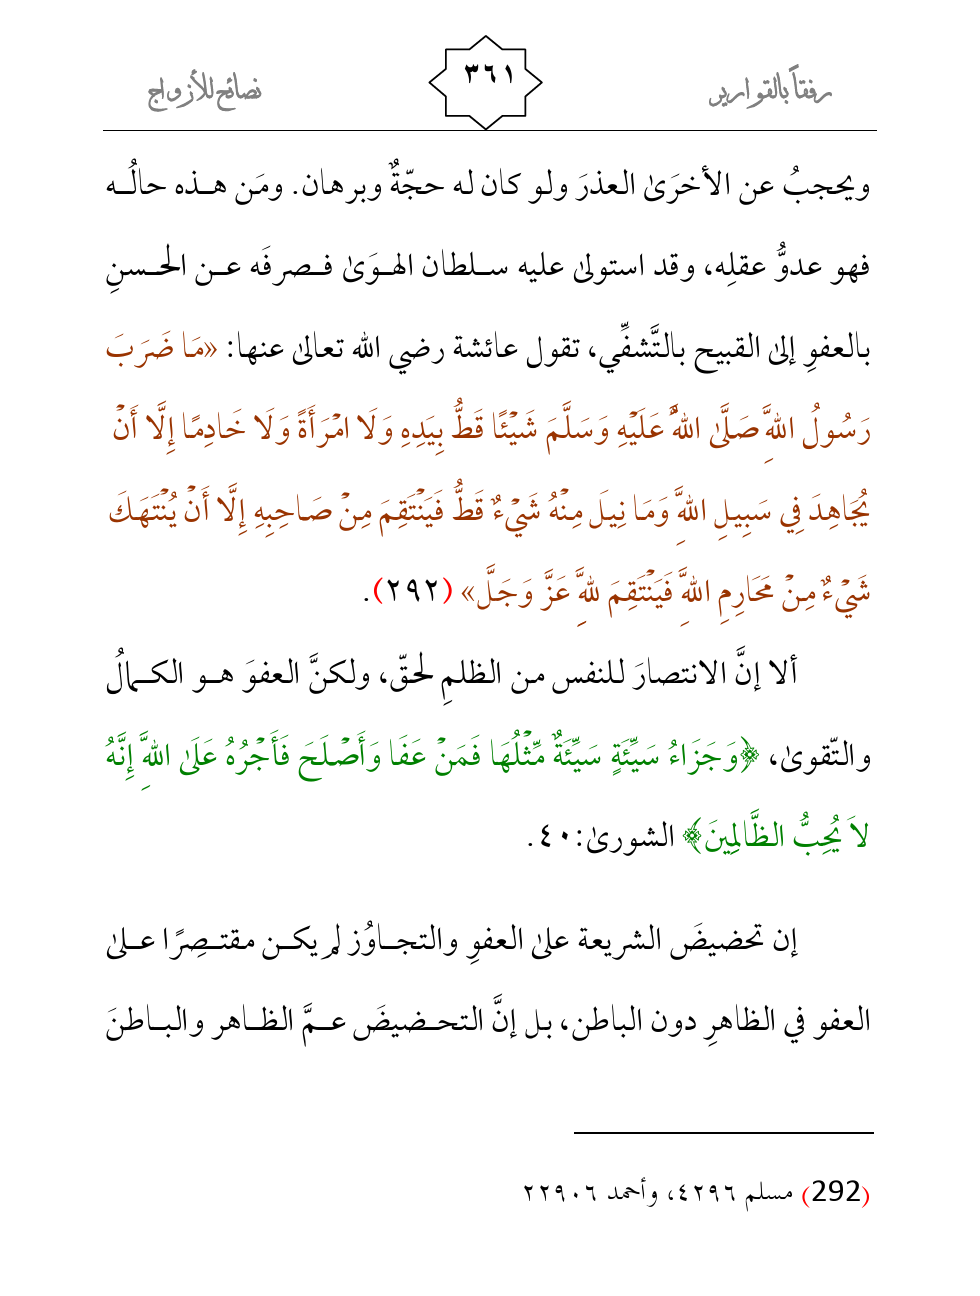 رفقاً بالقوارير ٣٦١ نصائح للأزواج
ويحجبُ عن الأخرَىٰ العذرَ ولو كان له حجّةٌ وبرهان. ومَن هذه حالُه
فهو عدوُّ عقلِه، وقد استولىٰ عليه سلطان الهوَىٰ فصرفَه عن الحسنِ
بالعفوِ إلىٰ القبيح بالتَّشفِّي، تقول عائشة رضي الله تعالىٰ عنها: «مَا ضَرَبَ
رَسُولُ اللَّهِ صَلَّىٰ اللَّهُ عَلَيْهِ وَسَلَّمَ شَيْئًا قَطُّ بِيَدِهِ وَلَا امْرَأَةً وَلَا خَادِمًا إِلَّا أَنْ
يُجَاهِدَ فِي سَبِيلِ اللَّهِ وَمَا نِيلَ مِنْهُ شَيْءٌ قَطُّ فَيَنْتَقِمَ مِنْ صَاحِبِهِ إِلَّا أَنْ يُنْتَهَكَ
شَيْءٌ مِنْ مَحَارِمِ اللَّهِ فَيَنْتَقِمَ لِلَّهِ عَزَّ وَجَلَّ» (٢٩٢).
ألا إنَّ الانتصارَ للنفس من الظلمِ لحقّ، ولكنَّ العفوَ هو الكمالُ
والتّقوىٰ، ﴿وَجَزَاءُ سَيِّئَةٍ سَيِّئَةٌ مِّثْلُهَا فَمَنْ عَفَا وَأَصْلَحَ فَأَجْرُهُ عَلَىٰ اللَّهِ إِنَّهُ
لاَ يُحِبُّ الظَّالِمِينَ﴾ الشورىٰ:٤٠.
إن تحضيضَ الشريعة علىٰ العفوِ والتجاوُز لم يكن مقتصِرًا علىٰ
العفو في الظاهرِ دون الباطن، بل إنَّ التحضيضَ عمَّ الظاهر والباطنَ
(292) مسلم ٤٢٩٦، وأحمد ٢٢٩٠٦